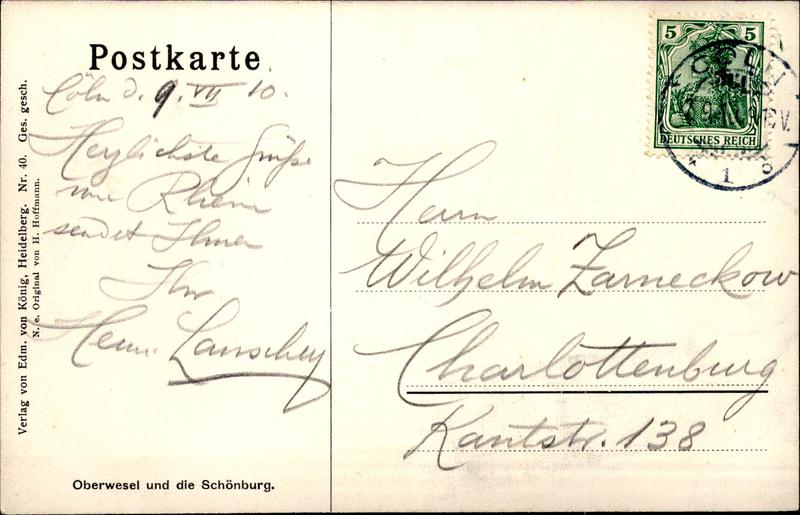 Postkarte
Cöln d. 9. VII 10.
Herzlichste Grüße
vom Rhein
sendet Ihnen
Ihr
Verlag von Edm. von König, Heidelberg. Nr. 40. Ges. gesch.
N. e. Original von H. Hoffmann.
Oberwesel und die Schönburg.
5 5
DEUTSCHES REICH
CÖLN
1
Herrn
Wilhelm Zarneckow
Charlottenburg
Kantstr. 138